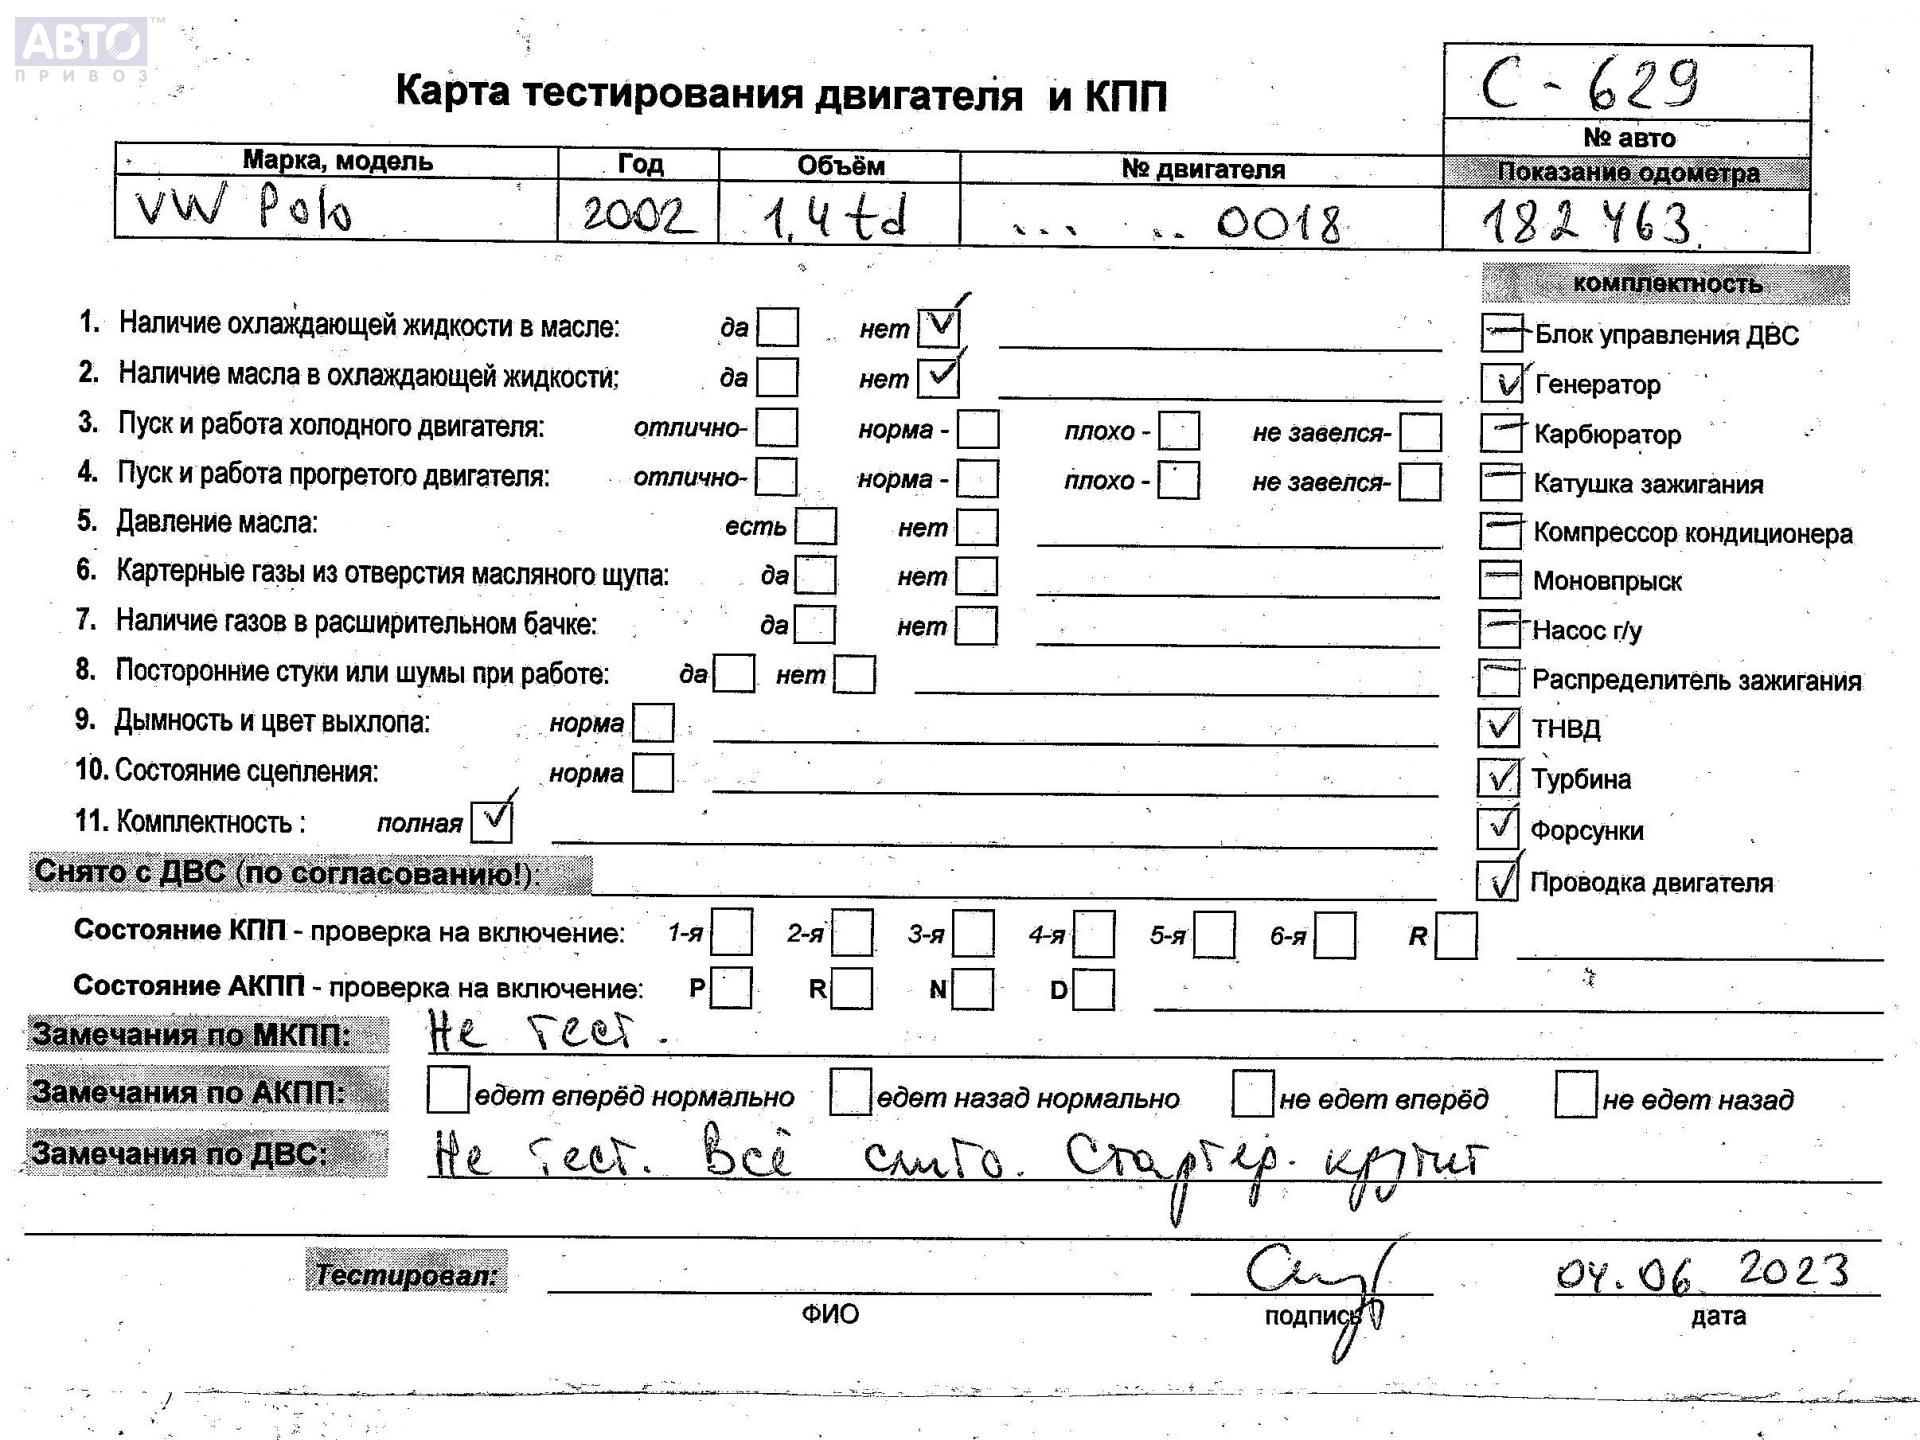 АВТО™
ПРИВОЗ
Карта тестирования двигателя и КПП
С - 629
№ авто
Марка, модель Год Объём № двигателя Показание одометра
VW Polo 2002 1,4 td ... .. 0018 182 463.
комплектность
1. Наличие охлаждающей жидкости в масле: да нет ✓
Блок управления ДВС
2. Наличие масла в охлаждающей жидкости; да нет ✓
✓ Генератор
3. Пуск и работа холодного двигателя: отлично- норма - плохо - не завелся-
Карбюратор
4. Пуск и работа прогретого двигателя: отлично- норма - плохо - не завелся-
Катушка зажигания
5. Давление масла: есть нет
Компрессор кондиционера
6. Картерные газы из отверстия масляного щупа: да нет
Моновпрыск
7. Наличие газов в расширительном бачке: да нет
Насос г/у
8. Посторонние стуки или шумы при работе: да нет
Распределитель зажигания
9. Дымность и цвет выхлопа: норма
✓ ТНВД
10. Состояние сцепления: норма
✓ Турбина
11. Комплектность : полная ✓
✓ Форсунки
Снято с ДВС (по согласованию!):
✓ Проводка двигателя
Состояние КПП - проверка на включение: 1-я 2-я 3-я 4-я 5-я 6-я R
Состояние АКПП - проверка на включение: P R N D
Замечания по МКПП: Не тест.
Замечания по АКПП: едет вперёд нормально едет назад нормально не едет вперёд не едет назад
Замечания по ДВС: Не тест. Всё слито. Стартер. крутит
Тестировал: 04.06.2023
ФИО подпись дата